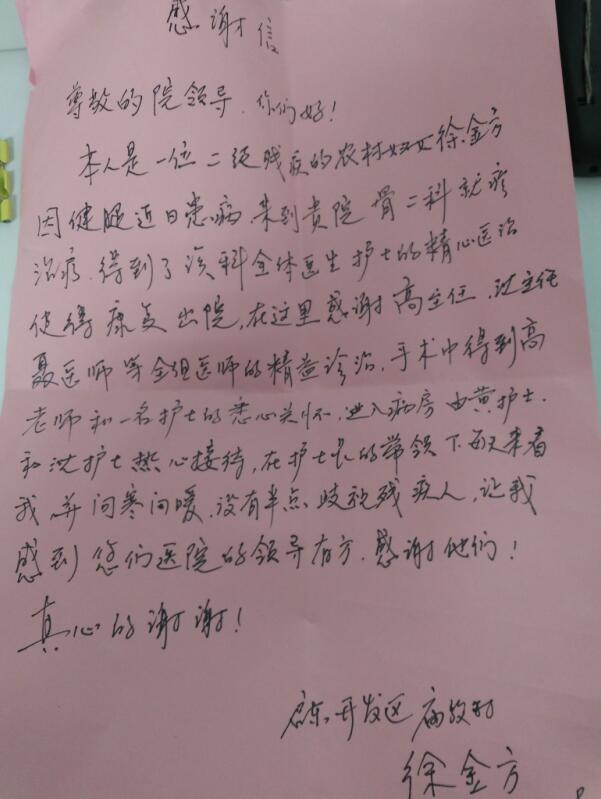 感谢信
尊敬的院领导、你们好!
本人是一位二级残疾的农村妇女徐金方
因健腿近日患病,来到贵院骨二科就疹
治疗,得到了该科全体医生护士的精心医治
使得康复出院,在这里感谢高主任、沈主任
聂医师等全组医师的精益诊治,手术中得到高
老师和一名护士的悉心关怀,进入病房由黄护士、
和沈护士热心接待,在护士长的带领下每天来看
我并问寒问暖,没有半点歧视残疾人,让我
感到您们医院的领导有方,感谢他们!
真心的谢谢!
启东开发区
徐金方